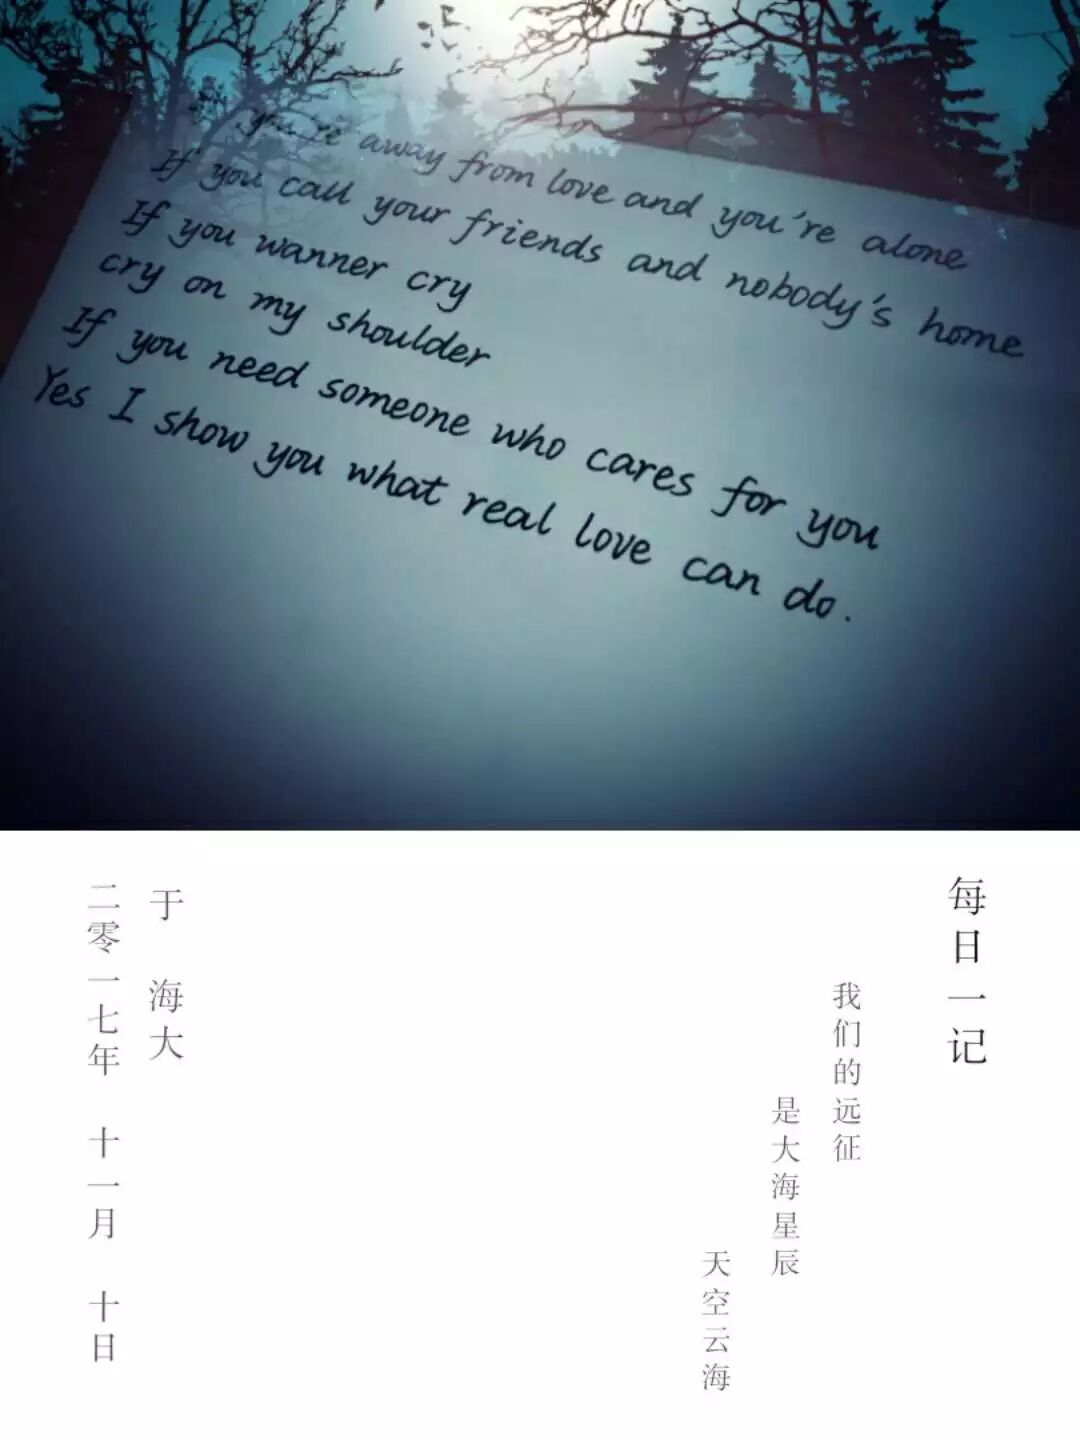 away from love and you're alone
If you call your friends and nobody's home
If you wanner cry
cry on my shoulder
If you need someone who cares for you
Yes I show you what real love can do.
每日一记
我们的远征
是大海星辰
天空云海
于 海大
二零一七年 十一月 十日